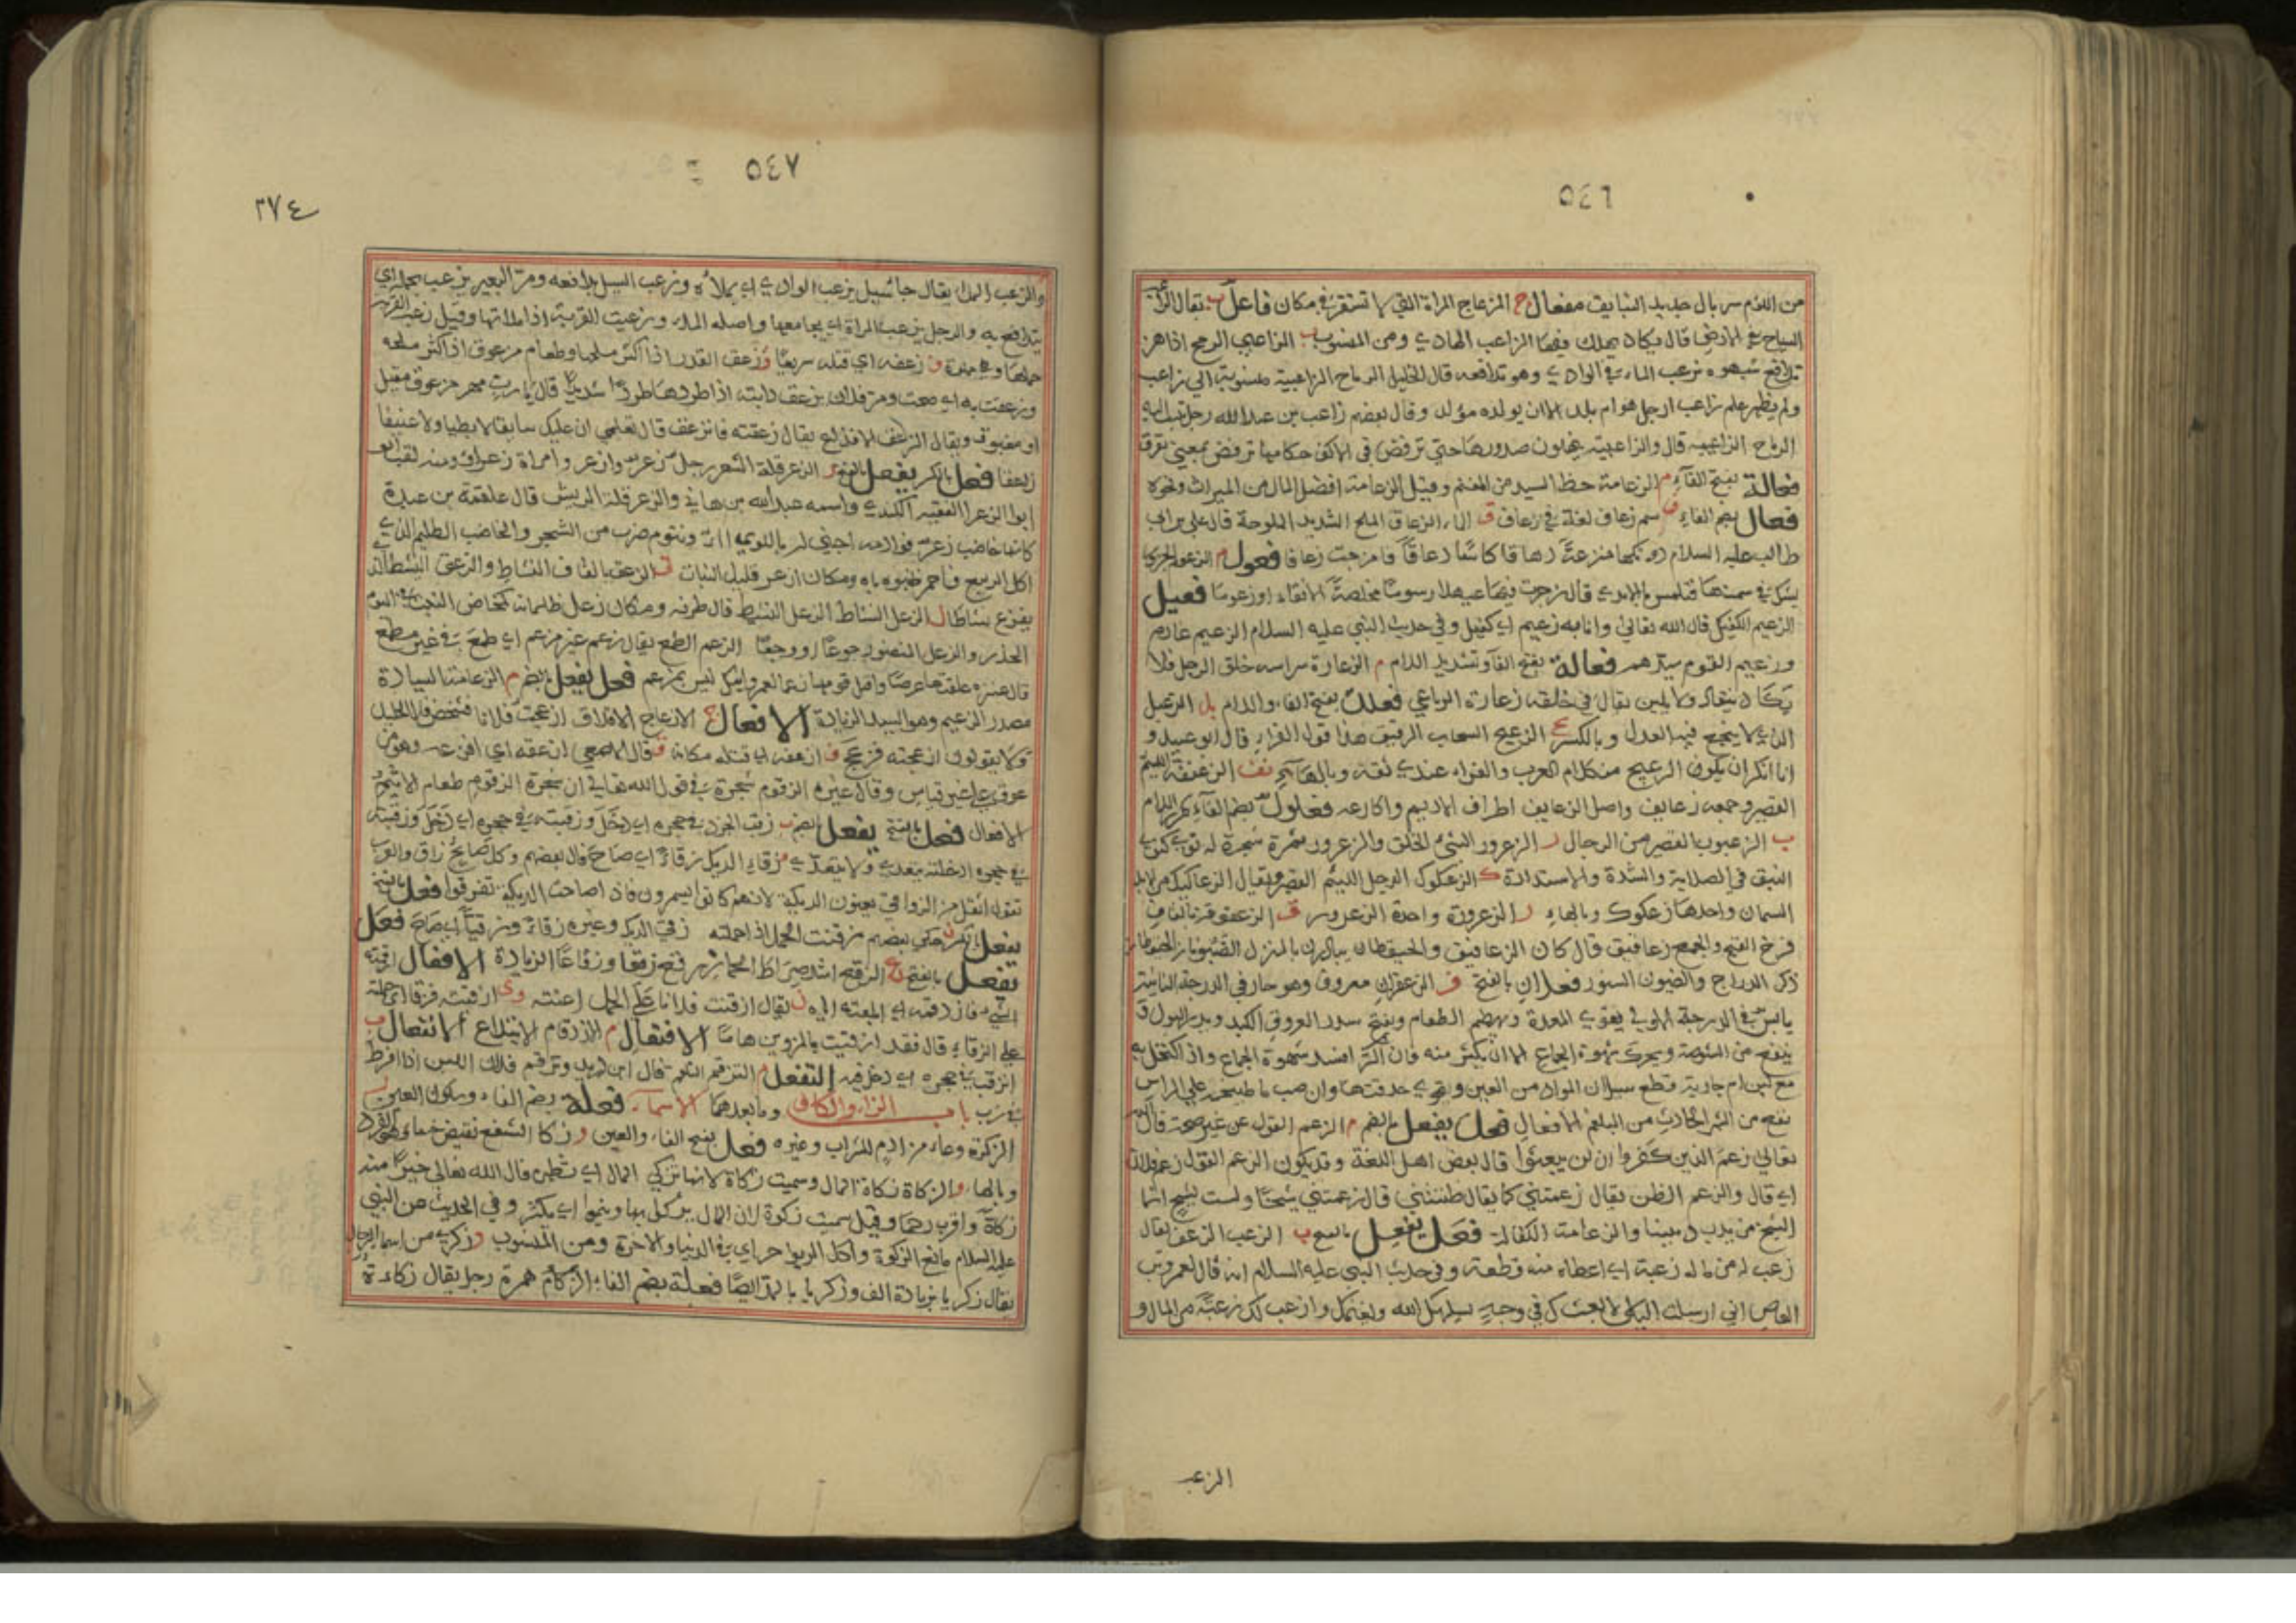 ٥٤٦
من اللازم سربال حديد السابق مفعال ج المزعاج المراة التي لا تستقر في مكان فاعل ب يقال الزاعب
السياح في الارض قال يكاد يهلك فيها الزاعب الهادي ومن المنسوب ب الزاعبي الرمح اذا هز
تدافع شبهوه بزعب الماء في الوادي وهو تدافعه قال الخليل الرماح الزاعبية منسوبة الي زاعب
ولم يظهر علم زاعب ارجل هو ام بلد الا ان يولده مولد وقال بعضهم زاعب من عبد الله رجل تنسب اليه
الرماح الزاعبية قال والزاعبية ينهلون صدورها حتي ترفض في الاكف حكامها ترفض بمعني تفرق
فعالة بفتح الفاء م الزعامة حظ السيد من المغنم وقيل الزعامة افضل المال من الميراث ونحوه
فعال بضم الفاء ف سم زعاف لغة في ذعاف ق الماء الزعاق الملح الشديد الملوحة قال علي بن ابي
طالب عليه السلام دونكها مترعة دهاقا كاسا زعاقا مزجت زعاقا فعول م الزعوم الجزور
يشك في سمنها فتلمس بالايدي قال زجرت فيها عيهلا رسوما مخلصة الانقاء او زعوما فعيل
الزعيم الكفيل قال الله تعالي وانا به زعيم اي كفيل وفي حديث النبي عليه السلام الزعيم غارم
وزعيم القوم سيدهم فعالة بفتح الفاء وتشديد اللام م الزعارة شراسة خلق الرجل فلا
يكاد ينقاد ولا يلين يقال في خلقه زعارة الرباعي فعلل بفتح الفاء واللام بل الزعبل
الذي لا ينجع فيه الغذاء وبالكسر ج الزعبج السحاب الرقيق هذا قول الفراء قال ابو عبيد و
انا انكر ان يكون الزعبج من كلام العرب والفراء عندي ثقة وبالهاء نف الزعنفة اللئيم
القصير وجمعه زعانف واصل الزعانف اطراف الاديم واكارعه فعلول بضم الفاء بكرر اللام
ب الزعبوب القصير من الرجال ر الزعرور السيء الخلق والزعرور ثمرة شجرة له نوي كنوي
النبق في الصلابة والشدة والاستدارة ك الزعكوك الرجل اللئيم القصير ويقال الزعاكيك من الابل
السمان واحدها زعكوك وبالهاء ر الزعرورة واحدة الزعرور ق الزعقوقة بالقاف
فرخ القبج والجمع زعاقيق قال كان الزعاقيق والحيقطان يبادرن بالمنزل الضيونا الحيقطان
ذكر الدراج والضيون السنور فعلان بالفتح ف الزعفران معروف وهو حار في الدرجة الثانية
يابس في الدرجة الاولي يقوي المعدة ويهضم الطعام ويفتح سدد العروق الكبد ويدر البول و
ينفع من الشوصة ويحرك شهوة الجماع الا ان يكثر منه فان اكثر افسد شهوة الجماع واذا اكتحل به
مع لبن ام جارية قطع سيلان المواد من العين وقوي حدقتها وان صب ماء طبيخه علي الراس
نفع من السهر الحادث من البلغم الافعال فعل يفعل بالضم م الزعم القول عن غير صحة قال الله
تعالي زعم الذين كفروا ان لن يبعثوا قال بعض اهل اللغة وقد يكون الزعم القول زعم فلان
اي قال والزعم الظن يقال زعمتني كما يقال ظننتني قال زعمتني شيخا ولست بشيخ انما
الشيخ من يدب دبيبا والزعامة الكفالة فعل يفعل بالفتح ب الزعب الزعف يقال
زعب له من ماله زعبة اي اعطاه منه قطعة وفي حديث النبي عليه السلام انه قال لعمرو بن
العاص اني ارسلت اليك لابعثك في وجه يسلمك الله ويغنمك وازعب لك زعبة من المال و
الزعب
٥٤٧
٢٧٤
والزعب الملء يقال جاء سيل يزعب الوادي اي يملأه وزعب السيل تدافعه ومر البعير يزعب بحمله اي
يتدافع به والرجل يزعب المراة اي يجامعها واصله الملء وزعبت القربة اذا ملاتها وقيل زعب القربة
حملها وهي ممتلئة ف زعفه اي قتله سريعا ق زعق القدر اذا اكثر ملحها وطعام مزعوق اذا اكثر ملحه
وزعقت به اي صحت ومر فلان يزعق دابته اذا طردها طردا شديدا قال يا رب مهر مزعوق مقيل
او مغبوق ويقال الزعق الافزاع يقال زعقته فانزعق قال تعلمي ان عليك سابقا لا بطيا ولا عنيفا
زاعقا فعل بالكسر يفعل بالفتح ر الزعر قلة الشعر رجل زعر وازعر وامراة زعراء ومنه لقب
ابو الزعراء الفقيه الكندي واسمه عبد الله بن هاني والزعر قلة الريش قال علقمة بن عبدة
كانها خاضب زعر قوادمه اجني له باللوي شري وتنوم ضرب من الشجر والخاضب الظليم الذي
اكل الربيع فاحمر ظنبوباه ومكان ازعر قليل النبات ق الزعق بالقاف النشاط والزعق النشيط الذي
يفزع نشاطا ل الزعل النشاط الزعل النشيط قال طرفة ومكان زعل ظلمانه كالمخاض الجرب في اليوم
الخدر والزعل المتضور جوعا ووجعا الزعم الطمع يقال زعم غير مزعم اي طمع في غير مطمع
قال عنترة علقتها عرضا واقتل قومها زعما لعمر ابيك ليس بمزعم فعل يفعل بالضم م الزعامة السيادة
مصدر الزعيم وهو السيد الزيادة الافعال ج الازعاج الاقلاق ازعجت فلانا فشخص قال الخليل
ولا يقولون ازعجته فزعج ف ازعفه اي قتله مكانه ق قال الاصمعي ازعقه اي افزعه وهو مز
عوق علي غير قياس وقال غيره الزقوم شجرة في قول الله تعالي ان شجرة الزقوم طعام الاثيم
الافعال فعل بالفتح يفعل بالضم ب زقب الجرذ في جحره اي دخل وزقبته في جحره اي دخل وزقبته
في جحره ادخلته يتعدي ولا يتعدي زقاء الديك زقاء اي صاح قال بعضهم وكل صايح زاق والعرب
تقول اثقل من الزواقي يعنون الديكة لانهم كانوا يسمرون فاذا صاحت الديكة تفرقوا فعل بالفتح
يفعل بالكسر ن حكي بعضهم زقنت الحمل اذا حملته زقي الديك وغيره زقاء وزقيا اي صاح فعل
يفعل بالفتح ع الزقع اشد ضراط الحمار زقع زقعا وزقاعا الزيادة الافعال ازقمته
الشيء فازدقمه اي ابلعته اياه ن يقال ازقنت فلانا علي الحمل اعنته وي ازقيته فزقا اي حملته
علي الزقاء قال فقد ازقيت بالمروين هاما الافتعال م الازدقام الابتلاع الانفعال ب
انزقب في جحره اي دخل فيه التفعل م التزقم التلقم قال ابن دريد وتزقم فلان اللبن اذا افرط
في شربه باب الزاء والكاف وما بعدهما الاسماء فعلة بضم الفاء وسكون العين ر
الزكرة وعاء من ادم للشراب وغيره فعل بفتح الفاء والعين و زكا الشفع نقيض خسا وهو الفرد
وبالهاء والزكاة زكاة المال وسميت زكاة لانها تزكي المال اي تطهره قال الله تعالي خيرا منه
زكاة واقرب رحما وقيل سميت زكوة لان المال يزكو بها وينمو اي يكثر وفي الحديث عن النبي
عليه السلام مانع الزكوة واكل الربوا حرباي في الدنيا والاخرة ومن المنسوب و زكري من اسماء الرجال
يقال زكريا بزيادة الف وزكرياء بالمد ايضا فعلة بضم الفاء الزكام همزة رجل يقال زكاءة